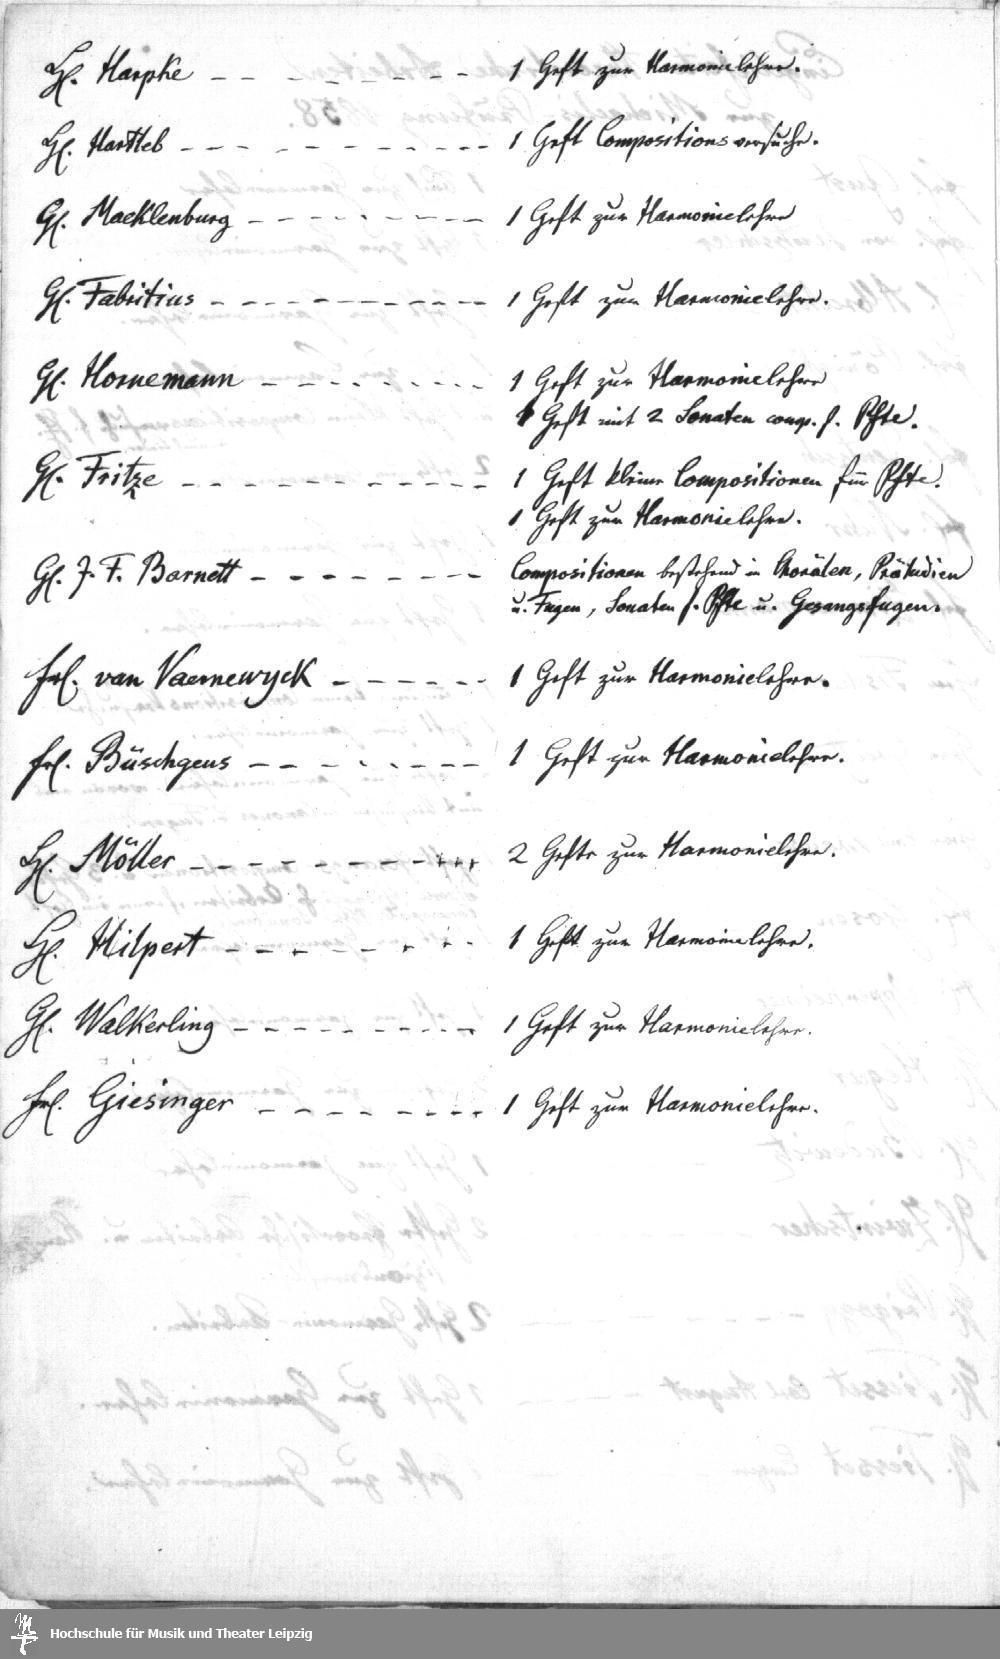 H. Harpke - - - - - - - - 1 Heft zur Harmonielehre.
H. Hartleb - - - - - - - - - - 1 Heft Compositionsversuche.
H. Macklenburg - - - - - - - - 1 Heft zur Harmonielehre
H. Fabritius - - - - - - - - - - 1 Heft zur Harmonielehre.
H. Hornemann - - - - - - - - 1 Heft zur Harmonielehre
1 Heft mit 2 Sonaten comp. f. Pfte.
H. Fritze - - - - - - - - - - 1 Heft kleine Compositionen für Pfte.
1 Heft zur Harmonielehre.
H. J. F. Barnett - - - - - - - Compositionen bestehend in Chorälen, Präludien
u. Fugen, Sonaten f. Pfte u. Gesangsfugen.
Frl. van Vaernewyck - - - - - - 1 Heft zur Harmonielehre.
Frl. Büschgens - - - - - - - - 1 Heft zur Harmonielehre.
H. Möller - - - - - - - - - - 2 Hefte zur Harmonielehre.
H. Hilpert - - - - - - - - - 1 Heft zur Harmonielehre.
H. Walkerling - - - - - - - - - 1 Heft zur Harmonielehre.
Frl. Giesinger - - - - - - - - 1 Heft zur Harmonielehre.
Hochschule für Musik und Theater Leipzig